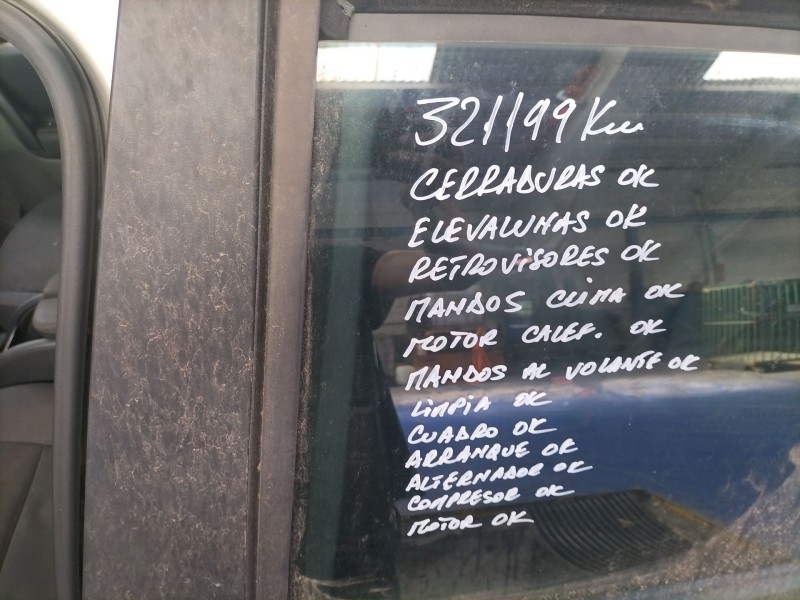 321199 Km
CERRADURAS OK
ELEVALUNAS OK
RETROVISORES OK
MANDOS CLIMA OK
MOTOR CALEF. OK
MANDOS AL VOLANTE OK
LIMPIA OK
CUADRO OK
ARRANQUE OK
ALTERNADOR OK
COMPRESOR OK
MOTOR OK